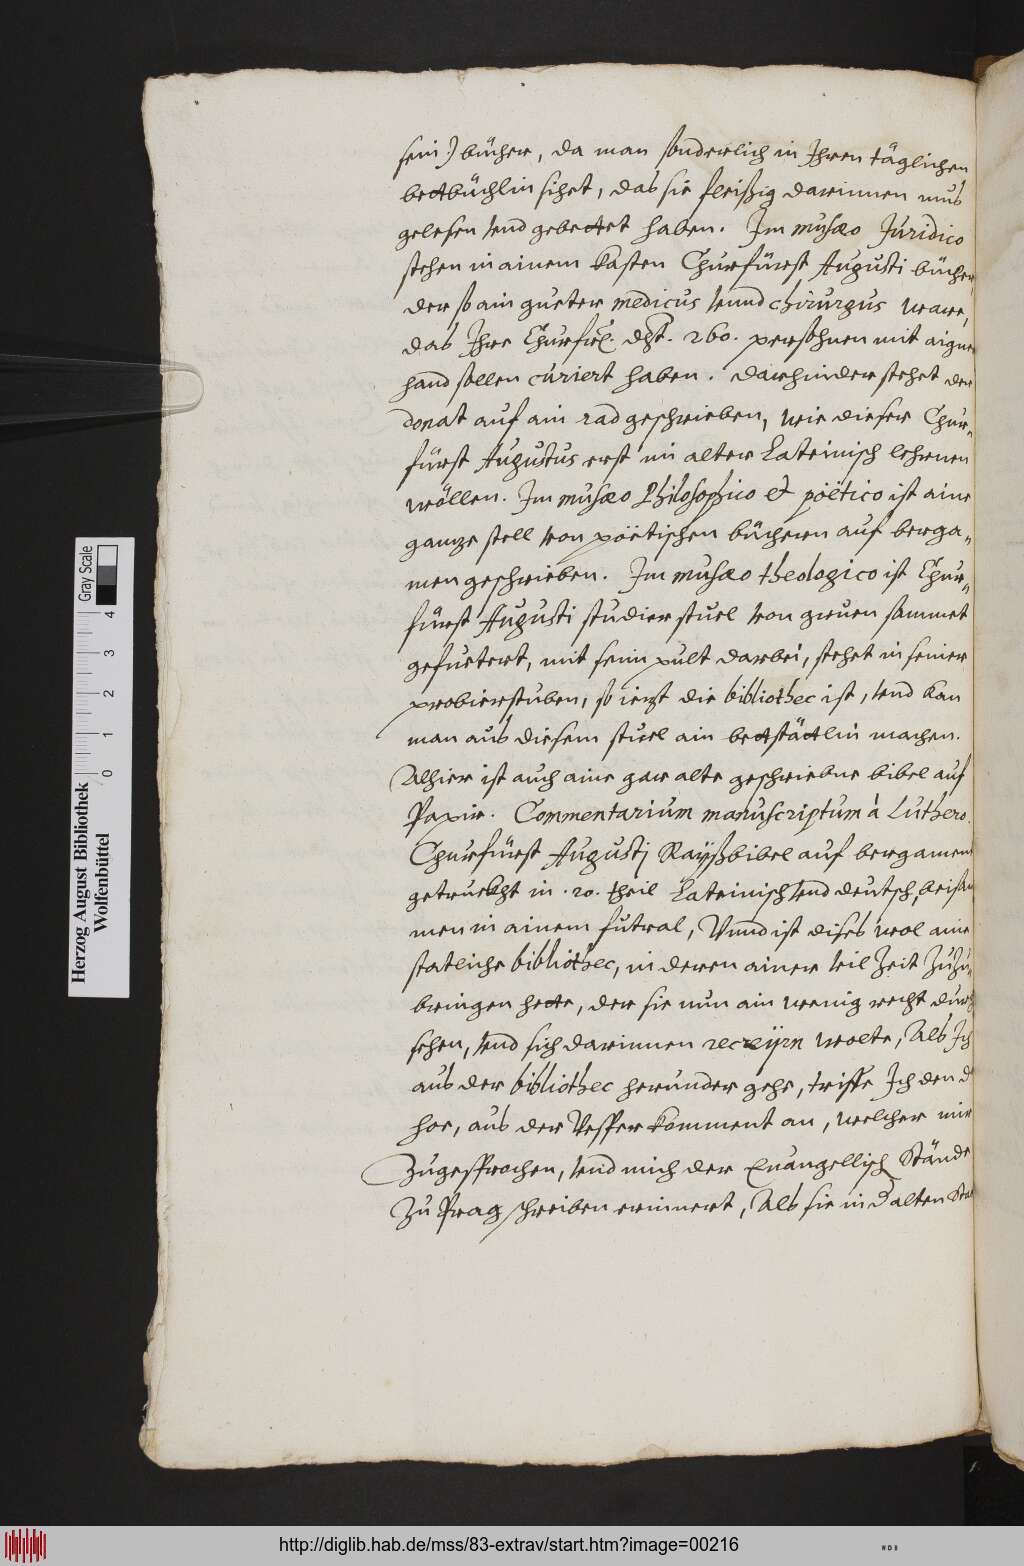 sein:) bücher, da man sonderlich in Ihren täglichen
betbüchlin sihet, das sie fleißig darinnen mus
gelesen vnd gebettet haben. Im musæo Juridico
stehen in ainem kasten Churfürst Augusti bücher
der so ain gueter medicus vnnd chirurgus ware,
das Ihre Churfrl. dht. 260. persohnen mit aigner
hand sollen curiert haben. darhinder stehet der
donat auf ain rad geschrieben, wie dieser Chur-
fürst Augustus erst in alter Lateinisch lehrnen
wöllen. Im musæo Philosophico et poëtico ist aine
ganze stell von poëtischen büchern auf berga-
men geschrieben. Im musæo theologico ist Chur-
fürst Augusti studierstuel von gruen sammet
gefuetert, mit seim pult darbei, stehet in seiner
probierstuben, so iezt die bibliothec ist, vnd kan
man aus diesem stuel ain bettstättlin machen.
Alhier ist auch aine gar alte geschriebne bibel auf
Papir. Commentarium manuscriptum à Luthero.
Churfürst Augustj Rayßbibel auf bergament
getruckht in .20. theil Lateinisch vnd deutsch, beisam
men in ainem futral, Vnnd ist dises wol aine
statliche bibliothec, in deren ainer vil Zeit Zuzu-
bringen hette, der sie nun ain wenig recht durch
sehen, vnd sich darinnen recreÿrn wolte, Als Ich
aus der bibliothec herunder gehe, triffe Ich den d
hoe, aus der Vesper komment an, welcher mir
Zugesprochen, vnd mich der Euangellisch Stände
Zu Prag schreiben erinnert, Als sie in d alten Stat
Herzog August Bibliothek
Wolfenbüttel
Gray Scale
0 1 2 3 4
http://diglib.hab.de/mss/83-extrav/start.htm?image=00216